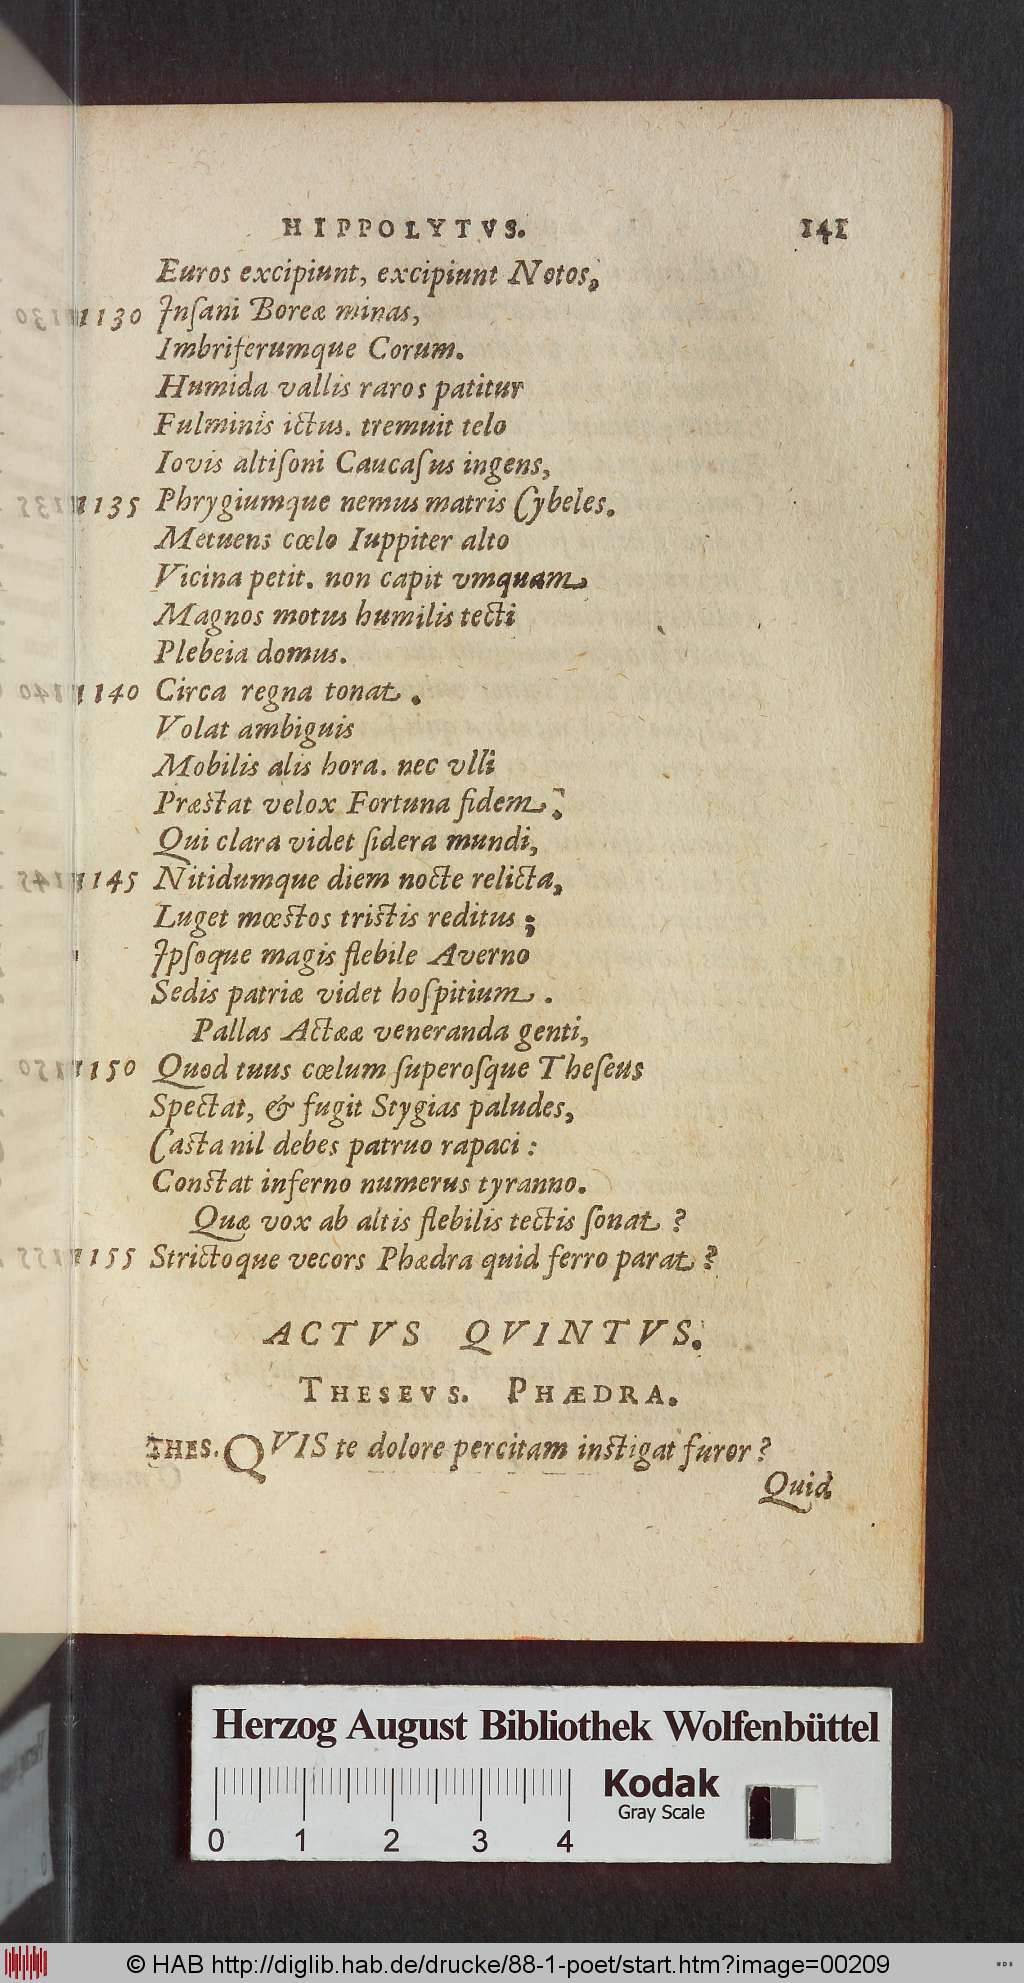 HIPPOLYTVS. 141
Euros excipiunt, excipiunt Notos,
1130 Inſani Boreæ minas,
Imbriferumque Corum.
Humida vallis raros patitur
Fulminis ictus. tremuit telo
Iovis altiſoni Caucaſus ingens,
1135 Phrygiumque nemus matris Cybeles.
Metuens cœlo Iuppiter alto
Vicina petit. non capit vmquam
Magnos motus humilis tecti
Plebeia domus.
1140 Circa regna tonat.
Volat ambiguis
Mobilis alis hora. nec vlli
Præstat velox Fortuna fidem.
Qui clara videt ſidera mundi,
1145 Nitidumque diem nocte relicta,
Luget mœstos tristis reditus;
Ipſoque magis flebile Averno
Sedis patriæ videt hoſpitium.
Pallas Actææ veneranda genti,
1150 Quod tuus cœlum ſuperoſque Theſeus
Spectat, & fugit Stygias paludes,
Casta nil debes patruo rapaci:
Constat inferno numerus tyranno.
Quæ vox ab altis flebilis tectis ſonat?
1155 Strictoque vecors Phædra quid ferro parat?
ACTVS QVINTVS.
THESEVS. PHÆDRA.
THES. QVIS te dolore percitam instigat furor?
Quid
Herzog August Bibliothek Wolfenbüttel
Kodak
Gray Scale
0 1 2 3 4
© HAB http://diglib.hab.de/drucke/88-1-poet/start.htm?image=00209